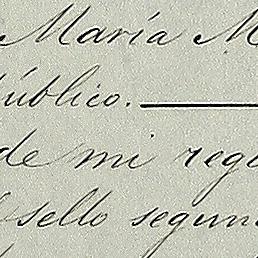 María M
úblico.
de mi reg
sello segun